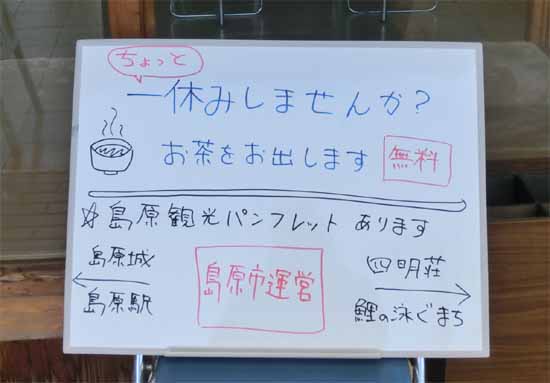 ちょっと
一休みしませんか?
お茶をお出します 無料
☆島原観光パンフレット あります
島原城
島原駅
島原市運営
四明荘
鯉の泳ぐまち